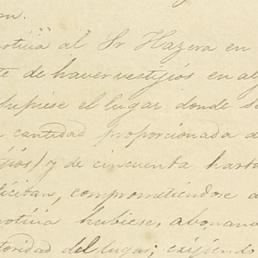 on.
noticia al Sr Hazera en
te de haver vestijios en al
supiese el lugar donde se
cantidad proporcionada a
jios) y de cincuenta hasta
licitan, comprometiendose a
noticia hubiese, abonand
toridad del lugar; exijiendo